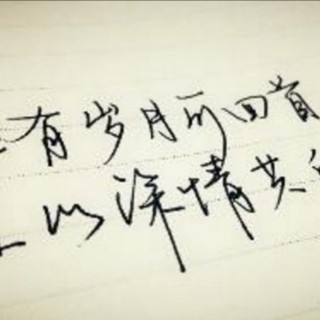 有岁月可回首
以深情共